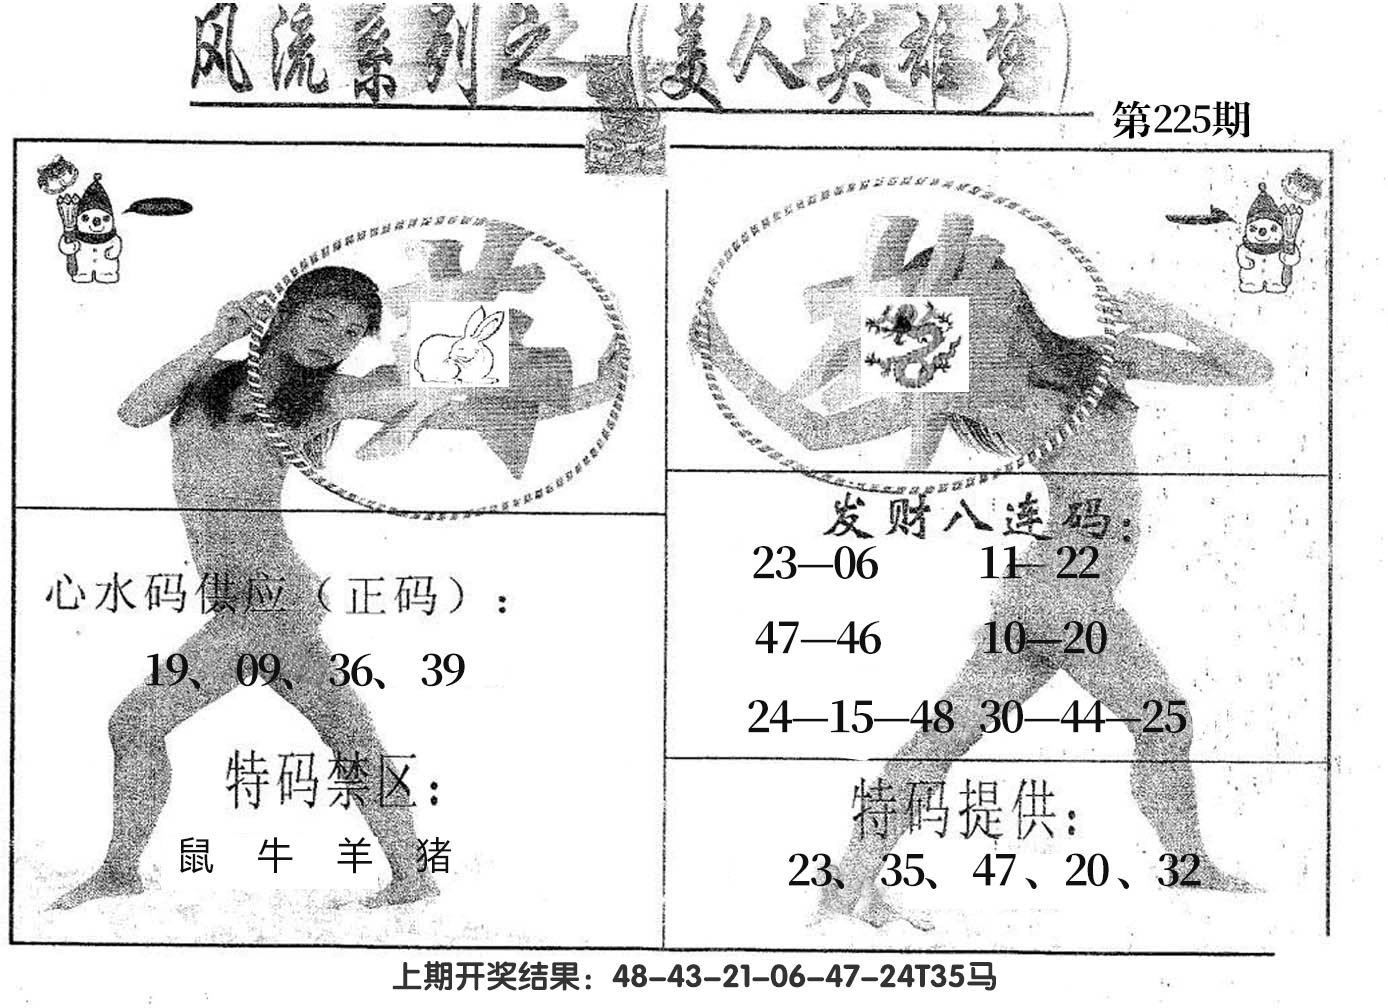 风流系列之 美人英雄梦
第225期
心水码供应（正码）：
19、09、36、39
特码禁区：
鼠 牛 羊 猪
发财八连码：
23—06 11—22
47—46 10—20
24—15—48 30—44—25
特码提供：
23、35、47、20、32
上期开奖结果：48-43-21-06-47-24T35马